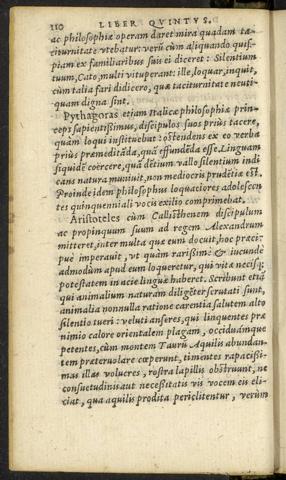 110 LIBER QVINTVS.
ac philosophiæ operam daret mira quadam ta-
citurnitate vtebatur: verũ cùm aliquando quis-
piam ex familiaribus suis ei diceret: Silentium
tuum, Cato, multi vituperant: ille, loquar, inquit,
cùm talia fari didicero, quæ taciturnitate neuti-
quam digna sint.
Pythagoras etiam Italicæ philosophiæ prin-
ceps sapientissimus, discipulos suos priùs tacere,
quàm loqui instituebat: ostendens ex eo verba
priùs præmeditãda, quã effundẽda esse. Linguam
siquidẽ coërcere, quã dẽtium vallo silentium indi
cans natura muniuit, non mediocris prudẽtiæ est.
Proinde idem philosophus loquaciores adolescen
tes quinquennali vocis exilio comprimebat.
Aristoteles cùm Callisthenem discipulum
ac propinquum suum ad regem Alexandrum
mitteret, inter multa quæ eum docuit, hoc præci-
puè imperauit, vt quàm rarissimè & iucundè
admodùm apud eum loqueretur, qui vitæ necisq;
potestatem in acie linguæ haberet. Scribunt etiã
qui animalium naturam diligẽter scrutati sunt,
animalia nonnulla ratione carentia salutem alto
silentio tueri: veluti anseres, qui linquentes præ
nimio calore orientalem plagam, occiduámque
petentes, cùm montem Taurũ Aquilis abundan-
tem præteruolare cœperunt, timentes rapacissi-
mas illas volucres, rostra lapillis obstruunt, ne
consuetudinis aut necessitatis vis vocem eis eli-
ciat, qua aquilis prodita periclitentur, verùm